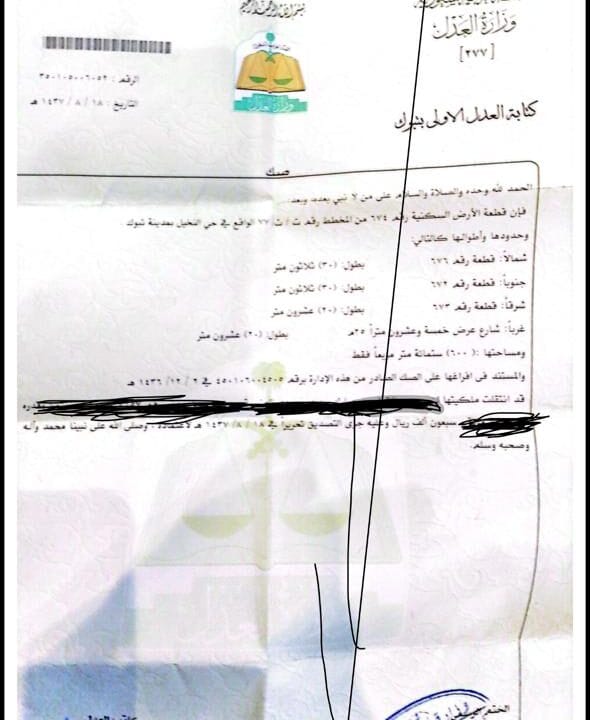 بسم الله الرحمن الرحيم
وزارة العدل
[٢٧٧]
كتابة العدل الاولى بتبوك
وزارة العدل
الرقم : ٣٥٠١٠٥٠٠٦٠٥٢
التاريخ : ١٨ / ٨ / ١٤٣٧ هـ
صك
الحمد لله وحده والصلاة والسلام على من لا نبي بعده، وبعد
فإن قطعة الأرض السكنية رقم ٦٧٤ من المخطط رقم ت / ت/ ٧٧ الواقع في حي النخيل بمدينة تبوك.
وحدودها وأطوالها كالتالي:
شمالاً: قطعة رقم ٦٧٦ بطول: (٣٠) ثلاثون متر
جنوباً: قطعة رقم ٦٧٢ بطول: (٣٠) ثلاثون متر
شرقاً: قطعة رقم ٦٧٣ بطول: (٢٠) عشرون متر
غرباً: شارع عرض خمسة وعشرون متراً ٢٥م بطول: (٢٠) عشرون متر
ومساحتها :( ٦٠٠) ستمائة متر مربعاً فقط
والمستند في افراغها على الصك الصادر من هذه الإدارة برقم ٤٥٠١٠٦٠٠٤٥٠٥ في ٢ / ١٢ / ١٤٣٦ هـ
قد انتقلت ملكيتها
سبعون ألف ريال وعليه جرى التصديق تحريرا في ١٨ / ٨/ ١٤٣٧ هـ لاعتماده ، وصلى الله على نبينا محمد وآله
وصحبه وسلم.